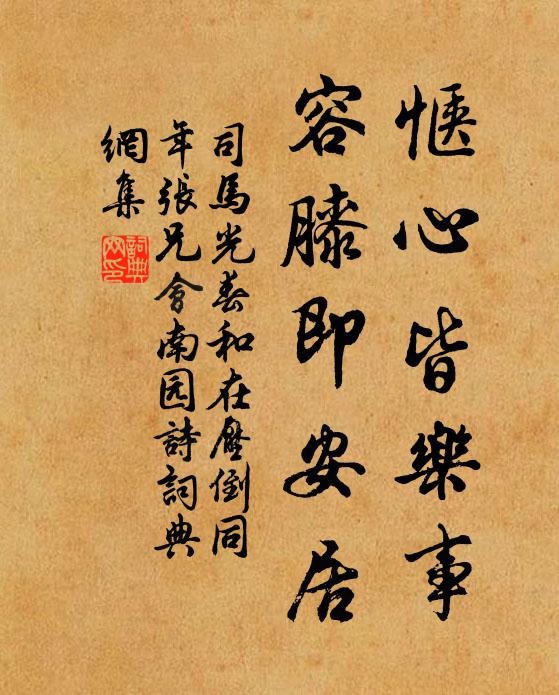 惬心皆樂事
容膝即安居
司馬光春和在壓倒同
年張兄會南园詩詞典
網集
詞典網印